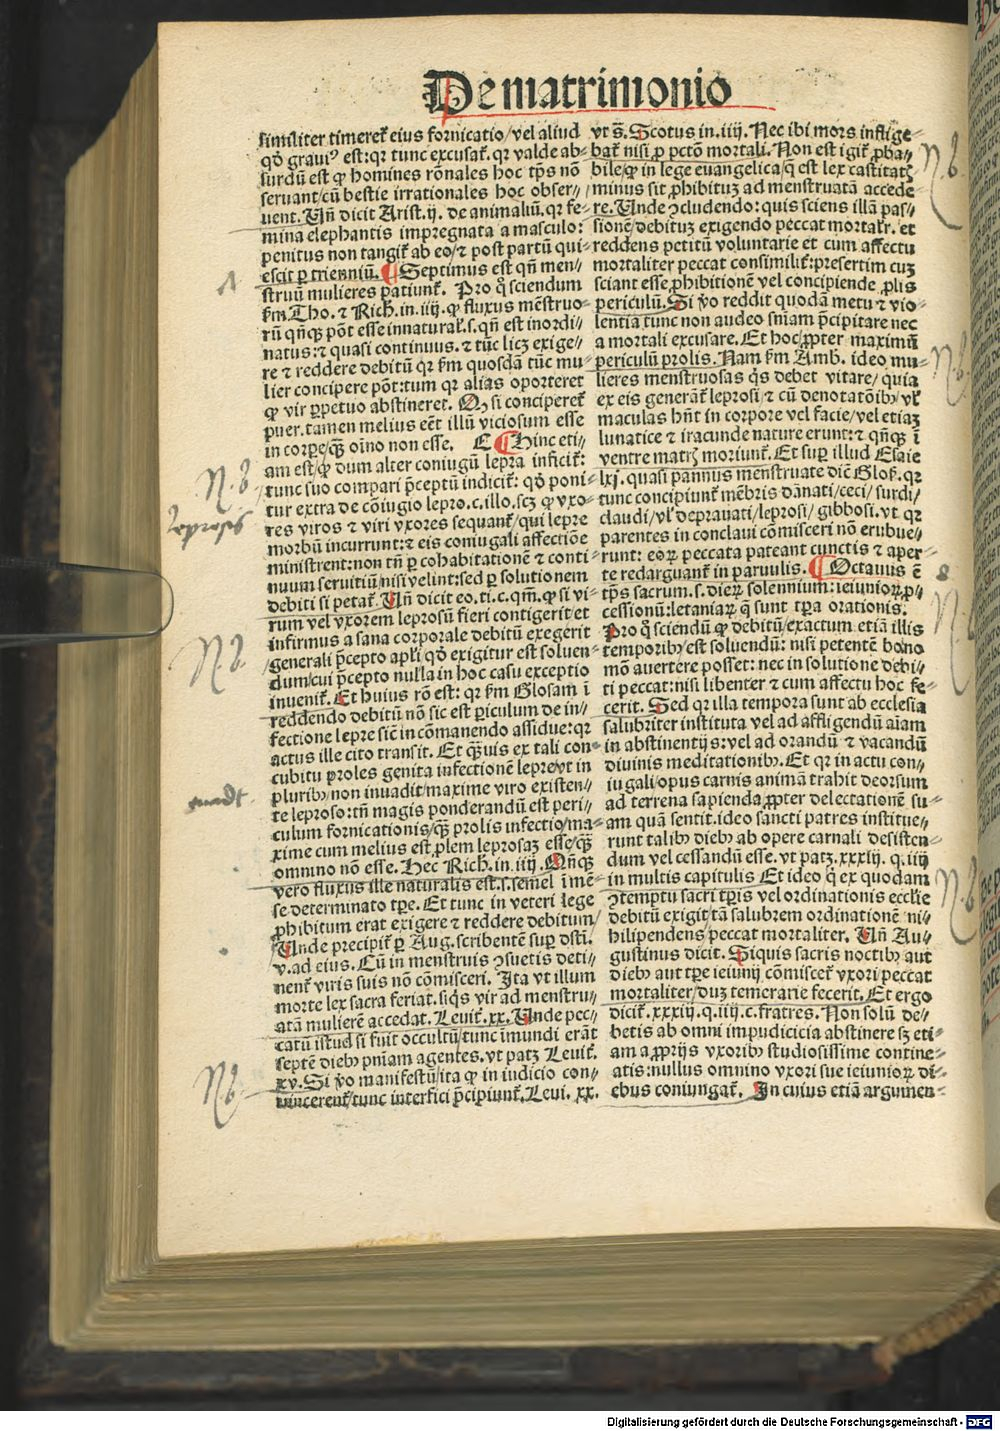 De matrimonio
similiter timeret̄ eius fornicatio/vel aliud
qḋ graui⁹ est: qꝛ tunc excusat̄. qꝛ valde ab-
surdū est ꝙ homines rōnales hoc tp̄s nō
seruant/cū bestie irrationales hoc obser-
uent. Vñ dicit Arist. ij. de animaliū. qꝛ fe-
mina elephantis impregnata a masculo:
penitus non tangit̄ ab eo/⁊ post partū qui-
escit ꝑ trienniū. ¶ Septimus est qñ men-
struū mulieres patiunt̄. Pro qͦ sciendum
ẜm. Tho. ⁊ Rich. in. iiij. ꝙ fluxus mēstruo-
rū qñqꝫ pōt esse innatural̄. s. qñ est inordi-
natus: ⁊ quasi continuus. ⁊ tūc licꝫ exige-
re ⁊ reddere debitū qꝛ ẜm quosdā tūc mu-
lier concipere pōt: tum qꝛ alias oporteret
ꝙ vir ꝑpetuo abstineret. Qꝫ si conciperet̄
puer. tamen melius eēt illū viciosum esse
in corpe/qꝫ̄ oīno non esse. C ¶ Hinc eti-
am est/ꝙ dum alter coniugū lepra inficit̄:
tunc suo compari p̄ceptū indicit̄: qḋ poni-
tur extra de cōiugio lepro. c. illo. scꝫ ꝙ vxo-
res viros ⁊ viri vxores sequant̄/qui lepre
morbū incurrunt: ⁊ eis coniugali affectiōe
ministrent: non tñ ꝑ cohabitationē ⁊ conti-
nuum seruitiū/nisi velint: sed ꝑ solutionem
debiti si petat̄. Vñ dicit eo. ti. c. qm̄. ꝙ si vi-
rum vel vxorem leprosū fieri contigerit/et
infirmus a sana corporale debitū exegerit
generali p̄cepto apl̄i qḋ exigitur est soluen-
dum/cui p̄cepto nulla in hoc casu exceptio
inuenit̄. Et huius rō est: qꝛ ẜm Glosam ī
reddendo debitū nō sic est ꝑiculum de in-
fectione lepre sic̄ in cōmanendo assidue: qꝛ
actus ille cito transit. Et qꝫ̄uis ex tali con-
cubitu proles genita infectionē lepre vt in
pluribꝫ non inuadit/maxime viro existen-
te leproso: tñ magis ponderandū est peri-
culum fornicationis/qꝫ̄ prolis infectio/ma-
xime cum melius est ꝓlem leprosaꝫ esse/qꝫ̄
omnino nō esse. Hec Rich. in. iiij. Qñqꝫ
vero fluxus ille naturalis est. s. semel ī mē-
se determinato tꝑe. Et tunc in veteri lege
ꝓhibitum erat exigere ⁊ reddere debitum/
Vnde precipit̄ ꝑ Aug. scribentē suꝑ dsti.
v. ad eius. Cū in menstruis ↄsuetis deti-
nent̄ viris suis nō cōmisceri. Ita vt illum
morte lex sacra feriat. si q̇s vir ad menstru-
atā mulierē accedat. Leuit̄. xx. Vnde pec-
catū istud si fuit occultū/tunc īmundi erāt
septē diebꝫ pn̄iam agentes. vt patꝫ Leuit̄.
xv. Si v̊o manifestū/ita ꝙ in iudicio con-
uincerent̄/tunc interfici p̄cipiunt̄. Leui. xx.
vt s̄. Scotus in. iiij. Nec ibi mors inflige-
bat̄ nisi ꝓ pctō mortali. Non est igit̄ ꝓba-
bile/ꝙ in lege euangelica/q̄ est lex castitatꝭ
minus sit ꝓhibituꝫ ad menstruatā accede-
re. Vnde ↄcludendo: quis sciens illā pas-
sionē/debituꝫ exigendo peccat mortalr̄. et
reddens petitū voluntarie et cum affectu
mortaliter peccat consimilit̄: presertim cuꝫ
sciant esse ꝓhibitionē vel concipiende ꝓlis
periculū. Si v̊o reddit quodā metu ⁊ vio-
lentia tunc non audeo sniam p̄cipitare nec
a mortali excusare. Et hoc/ꝓpter maximū
periculū prolis. Nam ẜm Amb. ideo mu-
lieres menstruosas q̇s debet vitare/quia
ex eis generāt̄ leprosi/⁊ cū denotatōibꝫ/vl̄
maculas hn̄t in corpore vel facie/vel etiaꝫ
lunatice ⁊ iracunde nature erunt: ⁊ qñqꝫ ī
ventre matrꝭ moriunt̄. Et suꝑ illud Esaie
lxj. quasi pannus menstruate dic̄ Glos. qꝛ
tunc concipiunt̄ mēbris dānati/ceci/surdi/
claudi/vl̄ deprauati/leprosi/gibbosi. vt qꝛ
parentes in conclaui cōmisceri nō erubue-
runt: eoꝝ peccata pateant cunctis ⁊ aper-
te redarguant̄ in paruulis. ¶ Octauus ē
tp̄s sacrum. s. dieꝝ solennium: ieiunioꝝ/ꝓ-
cessionū: letaniaꝝ q̄ sunt tꝑa orationis.
Pro qͦ sciendū ꝙ debitū/exactum etiā illis
temporibꝫ/est soluendū: nisi petentē bono
mō auertere posset: nec in solutione debi-
ti peccat: nisi libenter ⁊ cum affectu hoc fe-
cerit. Sed qꝛ illa tempora sunt ab ecclesia
salubriter instituta vel ad affligendū aīam
in abstinentijs: vel ad orandū ⁊ vacandū
diuinis meditationibꝫ. Et qꝛ in actu con-
iugali/opus carnis animā trahit deorsum
ad terrena sapienda/ꝓpter delectationē su-
am quā sentit. ideo sancti patres institue-
runt talibꝫ diebꝫ ab opere carnali desisten-
dum vel cessandū esse. vt patꝫ. xxxiij. q. iiij
in multis capitulis Et ideo q̇ ex quodam
ↄtemptu sacri tꝑis vel ordinationis ecclie
debitū exigit/tā salubrem ordinationē ni-
hilipendens/peccat mortaliter. Vñ Au-
gustinus dicit. Siquis sacris noctibꝫ aut
diebꝫ aut tꝑe ieiunij cōmiscet̄ vxori peccat
mortaliter/duꝫ temerarie fecerit. Et ergo
dicit̄. xxxiij. q. iiij. c. fratres. Non solū de-
betis ab omni impudicicia abstinere sꝫ eti-
am a ꝓprijs vxoribꝫ studiosissime contine-
atis: nullus omnino vxori sue ieiunioꝝ di-
ebus coniungat̄. In cuius etiā argumen-
N.b.
N.b.
N.b.
8
N.b.
N.b.
N.b.
N.b.
leprosis
Digitalisierung gefördert durch die Deutsche Forschungsgemeinschaft - DFG